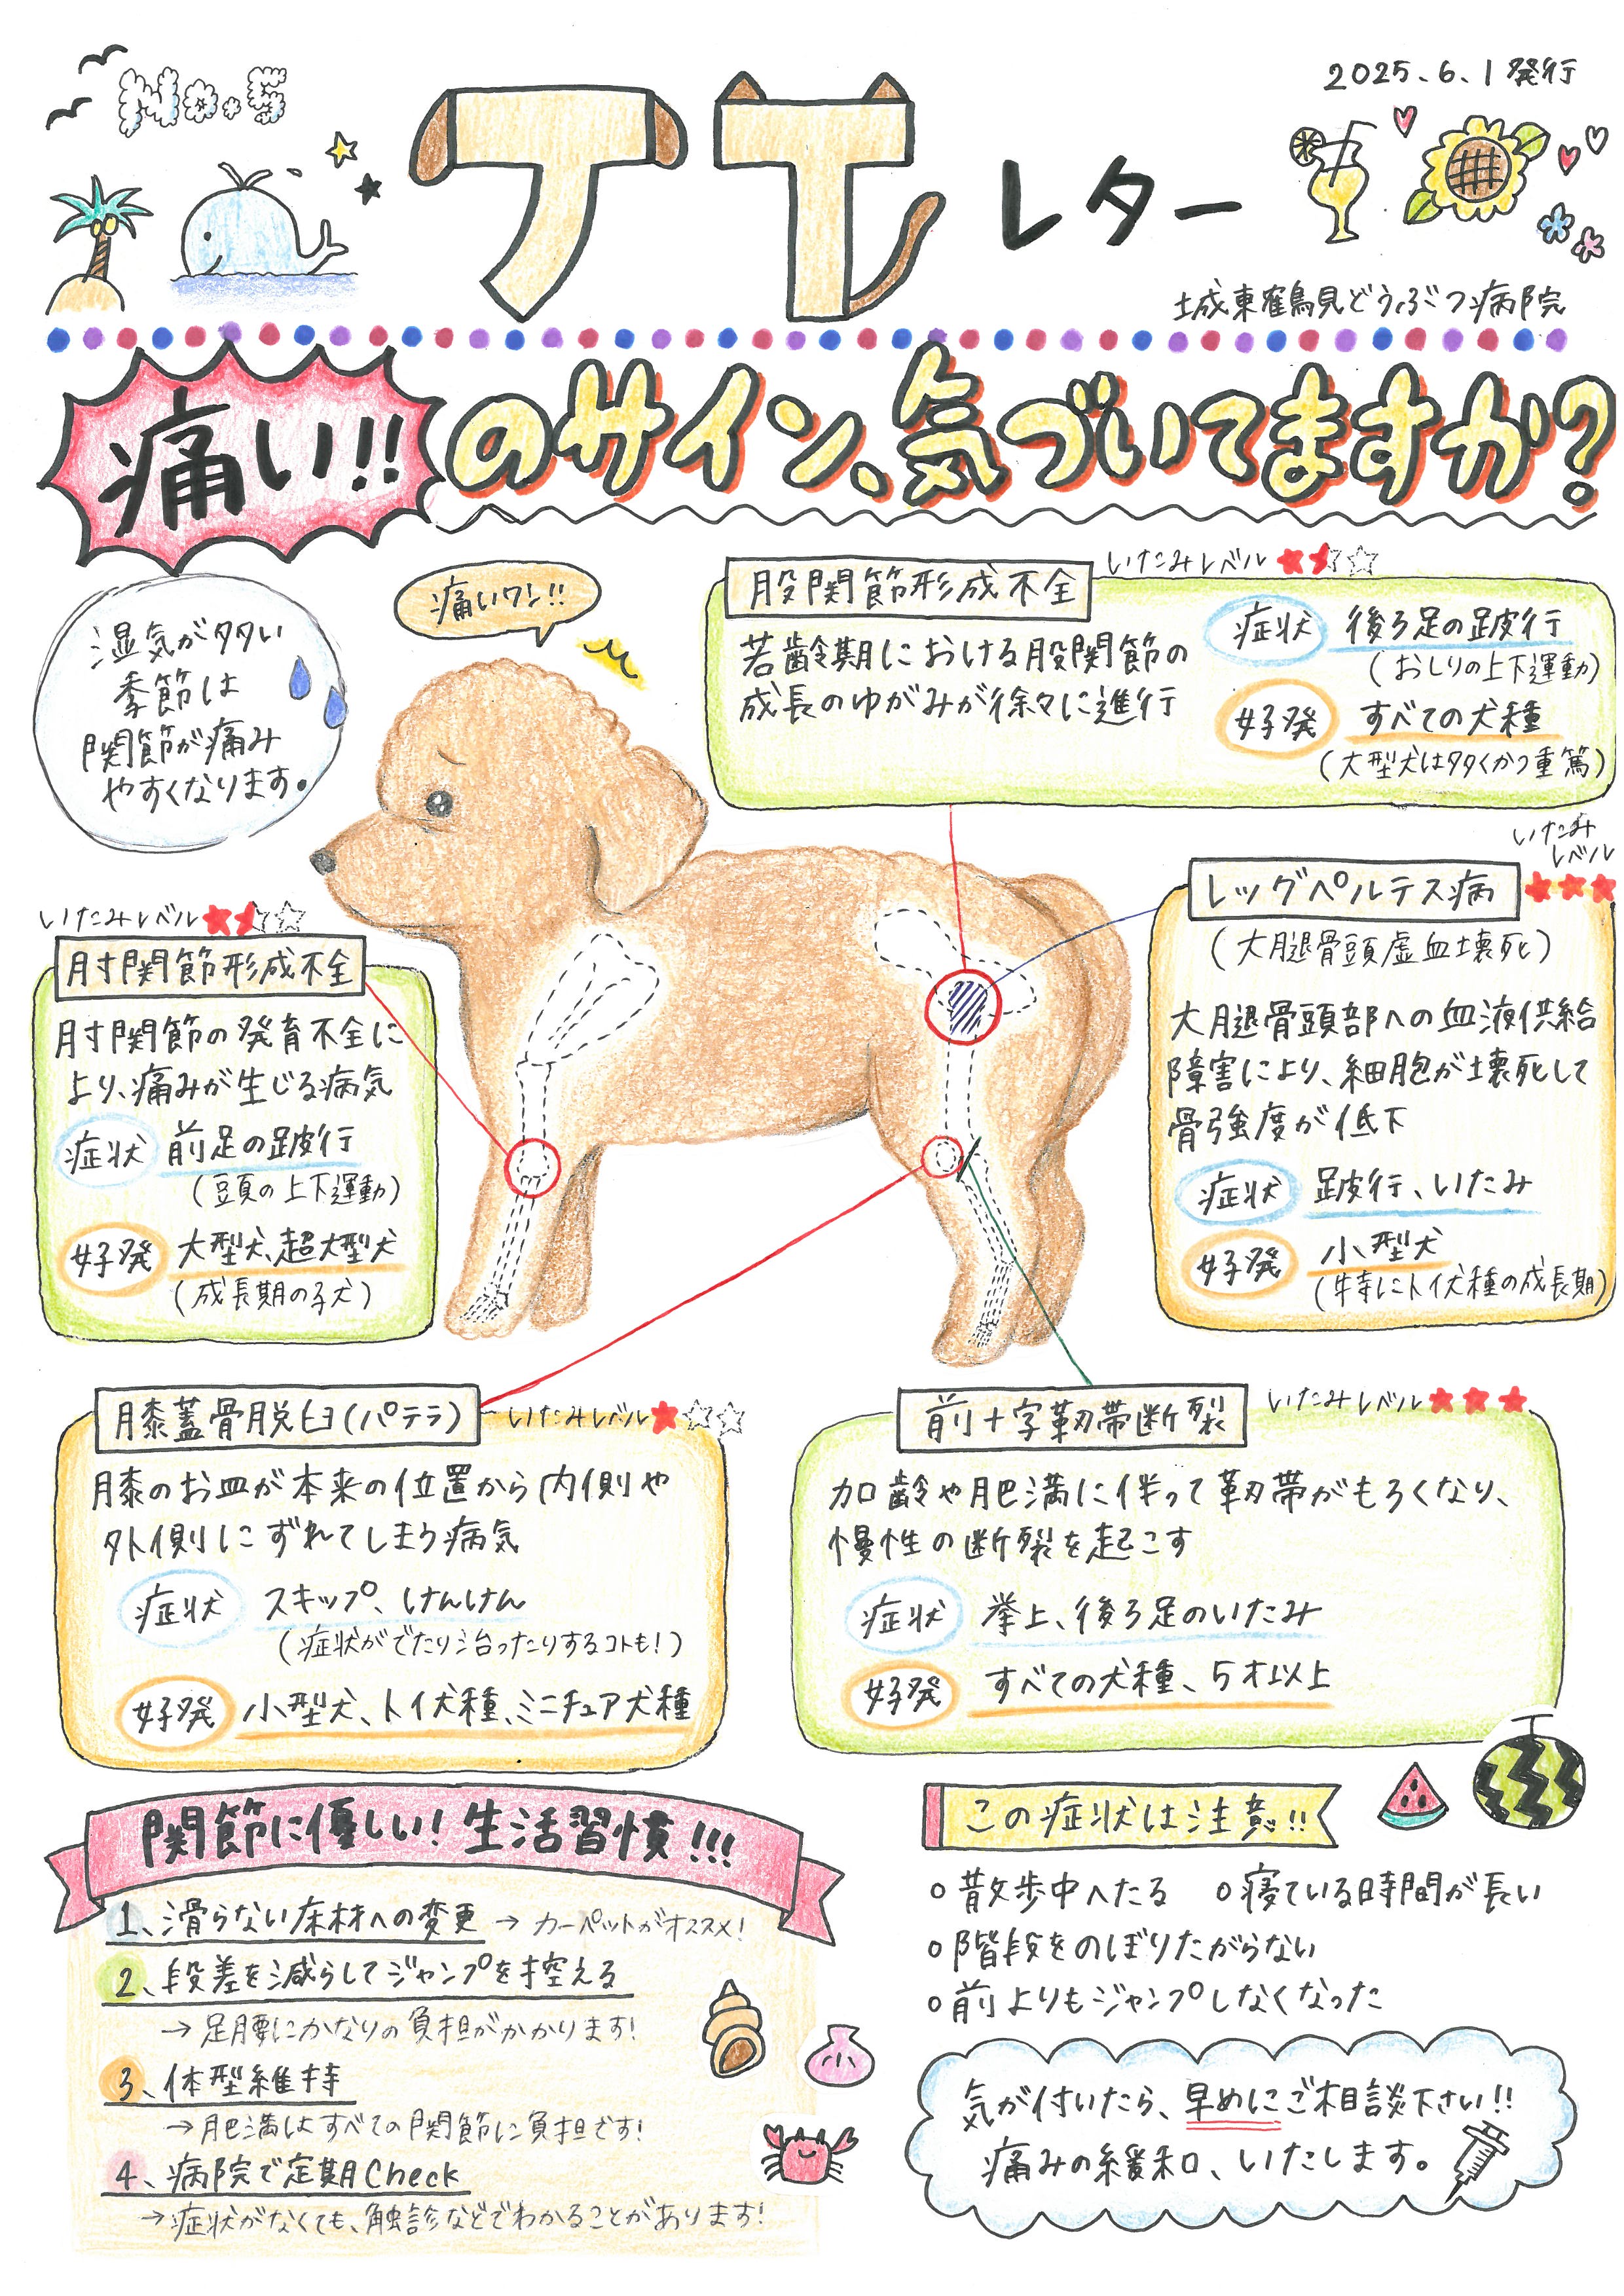 No.5
JT レター
2025.6.1発行
城東鶴見どうぶつ病院
痛い!!のサイン、気づいてますか?
湿気が多い
季節は
関節が痛み
やすくなります。
痛いワン!!
股関節形成不全
いたみレベル ★★☆
若齢期における股関節の
成長のゆがみが徐々に進行
症状 後ろ足の跛行
(おしりの上下運動)
好発 すべての犬種
(大型犬は多くかつ重篤)
いたみ
レベル
レッグペルテス病 ★★★
(大腿骨頭虚血壊死)
大腿骨頭部への血液供給
障害により、細胞が壊死して
骨強度が低下
症状 跛行、いたみ
好発 小型犬
(特にトイ犬種の成長期)
いたみレベル ★★☆
肘関節形成不全
肘関節の発育不全に
より、痛みが生じる病気
症状 前足の跛行
(頭の上下運動)
好発 大型犬、超大型犬
(成長期の子犬)
膝蓋骨脱臼(パテラ) いたみレベル ★☆☆
膝のお皿が本来の位置から内側や
外側にずれてしまう病気
症状 スキップ、けんけん
(症状がでたり治ったりするコトも!)
好発 小型犬、トイ犬種、ミニチュア犬種
前十字靭帯断裂 いたみレベル ★★★
加齢や肥満に伴って靭帯がもろくなり、
慢性の断裂を起こす
症状 挙上、後ろ足のいたみ
好発 すべての犬種、5才以上
関節に優しい!生活習慣!!!
1、滑らない床材への変更 → カーペットがオススメ!
2、段差を減らしてジャンプを控える
→足腰にかなりの負担がかかります!
3、体型維持
→肥満はすべての関節に負担です!
4、病院で定期Check
→症状がなくても、触診などでわかることがあります!
この症状は注意!!
○散歩中へたる ○寝ている時間が長い
○階段をのぼりたがらない
○前よりもジャンプしなくなった
気が付いたら、早めにご相談下さい!!
痛みの緩和、いたします。